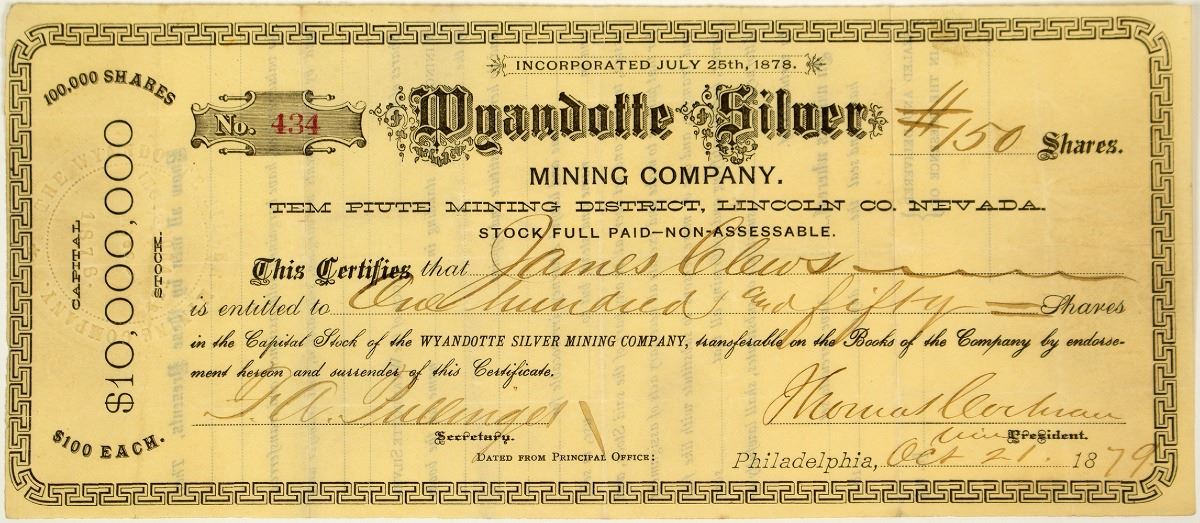 INCORPORATED JULY 25th, 1878.
100,000 SHARES
No. 434
Wyandotte Silver
#150 Shares.
MINING COMPANY.
TEM PIUTE MINING DISTRICT, LINCOLN CO. NEVADA.
STOCK FULL PAID—NON-ASSESSABLE.
CAPITAL
$10,000,000
STOCK.
$100 EACH.
This Certifies that James Clews
is entitled to One hundred and fifty Shares
in the Capital Stock of the WYANDOTTE SILVER MINING COMPANY, transferable on the Books of the Company by endorse-
ment hereon and surrender of this Certificate.
Thomas Cochran
Secretary.
President.
DATED FROM PRINCIPAL OFFICE:
Philadelphia, Oct 21. 1879